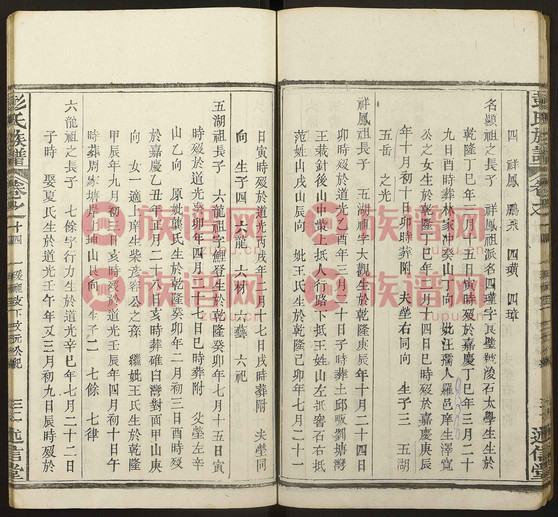 四 祥鳳 鵬系 四璜 四璋
名顯祖之長子 祥鳳祖派名四 字良 號 石太學生生於
乾隆丁巳年 月十五日寅時歿於嘉慶丁巳年三月二十
日 時葬林家 癸山丁向 妣汪 人羅邑庠生澤寬
公之女生於乾隆丁巳年 月十四日巳時歿於嘉慶庚辰
年十月初十日卯時葬附 夫塋右同向 生子三 五湖
五岳 之光
祥鳳祖長子 五湖祖字大觀生於乾隆庚辰年十月二十四日
卯時歿於道光乙酉年三月二十日子時葬土邱 劉塘灣
上王栽針後山中 抵人行路下抵王姓山左抵窖石右抵
范姓山戌山辰向 妣王氏生於乾隆癸卯年七月二十一
日寅時歿於道光丙戌年二月十七日戌時葬附 夫塋同
向 生子四 六龍 六材 六藝 六祀
五湖祖長子 六龍祖字 登生於乾隆癸卯年七月十五日寅
時歿於道光 卯年四月 七日巳時葬附 父塋左辛
山乙向 原妣 氏生於乾隆癸卯年二月初三日酉時歿
於嘉慶乙丑年正月二十六日亥時葬碓臼灣對面甲山庚
向 女一 適上庠生蔡彥容公之孫 繼妣王氏生於乾隆
甲辰年九月初二日亥時歿於道光壬辰年四月初十日午
時葬周家塘 坤山艮向 生子二 七條 七律
六龍祖之長子 七條字行力生於道光辛巳年七月二十二日
子時 娶夏氏生於道光壬午年又三月初九日辰時歿於
彭氏族譜
卷之十四
述信堂
彭氏族譜
卷之十四
述信堂
族谱网